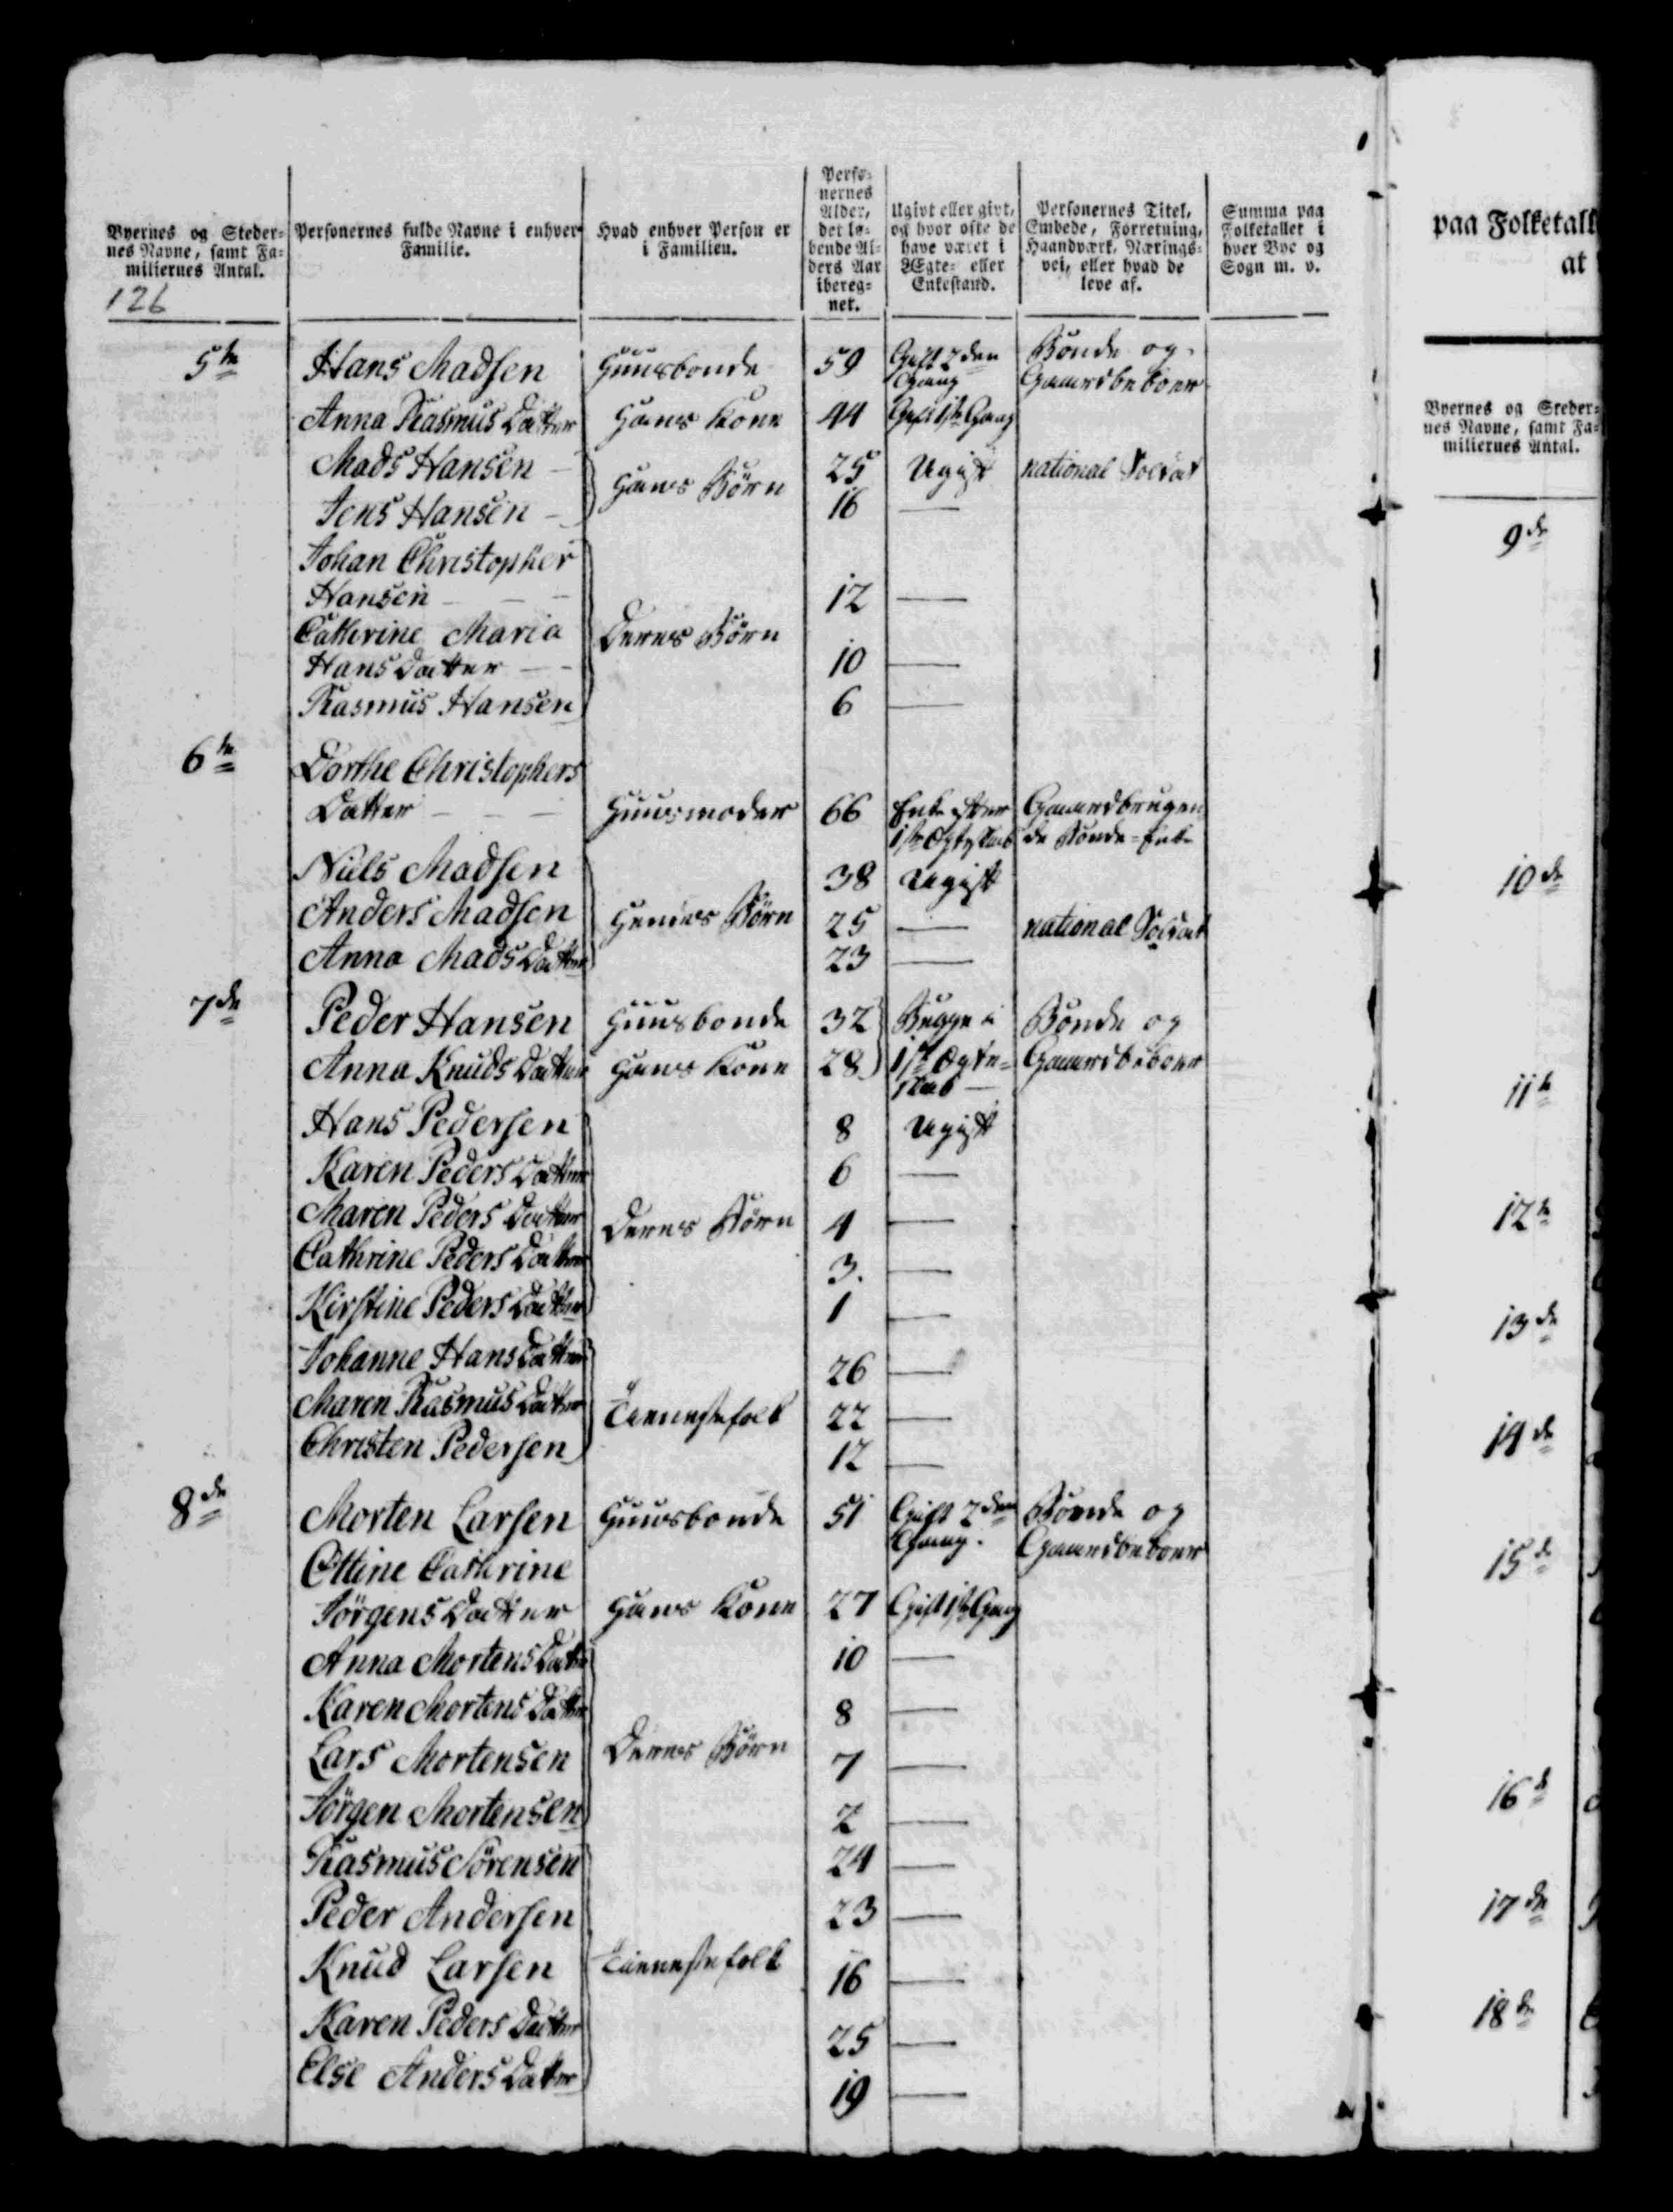 Byernes og Steder-
nes Navne, samt Fa-
miliernes Antal.
126
Personernes fulde Navne i enhver
Familie.
Hvad enhver Person er
i Familien.
Perso-
nernes
Alder,
det lø-
bende Al-
ders Aar
ibereg-
net.
Ugivt eller givt,
og hvor ofte de
have været i
Ægte- eller
Enkestand.
Personernes Titel,
Embede, Forretning,
Haandværk, Nærings-
vei, eller hvad de
leve af.
Summa paa
Folketallet i
hver Bye og
Sogn m. v.
5te Hans Madsen Huusbonde 59 Gift 2den Bonde og
Gang Gaardbeboer
Anna Rasmus Datter Hans Kone 44 Gift 1ste Gang
Mads Hansen 25 Ugift national Soldat
Hans Børn
Jens Hansen 16 —
Johan Christopher
Hansen 12 —
Cathrine Maria Deres Børn
Hans Datter 10 —
Rasmus Hansen 6 —
6te Dorthe Christophers
Datter Huusmoder 66 Enke efter Gaardbrugen
1ste Ægteskab de Bonde-Enke
Niels Madsen 38 Ugift
Anders Madsen Hendes Børn 25 — national Soldat
Anna Mads Datter 23 —
7de Peder Hansen Huusbonde 32 Begge i Bonde og
Anna Knuds Datter Hans Kone 28 1ste Ægte- Gaardbeboer
skab
Hans Pedersen 8 Ugift
Karen Peders Datter 6 —
Maren Peders Datter Deres Børn 4 —
Cathrine Peders Datter 3. —
Kirstine Peders Datter 1 —
Johanne Hans Datter 26 —
Maren Rasmus Datter Tienestefolk 22 —
Christen Pedersen 12 —
8de Morten Larsen Huusbonde 51 Gift 2den Bonde og
Gang. Gaardbeboer
Ottine Cathrine
Jörgens Datter Hans Kone 27 Gift 1ste Gang
Anna Mortens Datter 10 —
Karen Mortens Datter 8 —
Lars Mortensen Deres Børn 7 —
Jörgen Mortensen 2 —
Rasmus Sörensen 24 —
Peder Andersen 23 —
Knud Larsen Tienestefolk 16 —
Karen Peders Datter 25 —
Else Anders Datter 19 —
paa Folketall
at
Byernes og Steder-
nes Navne, samt Fa-
miliernes Antal.
9de
10de
11te
12te
13de
14de
15de
16de
17de
18de